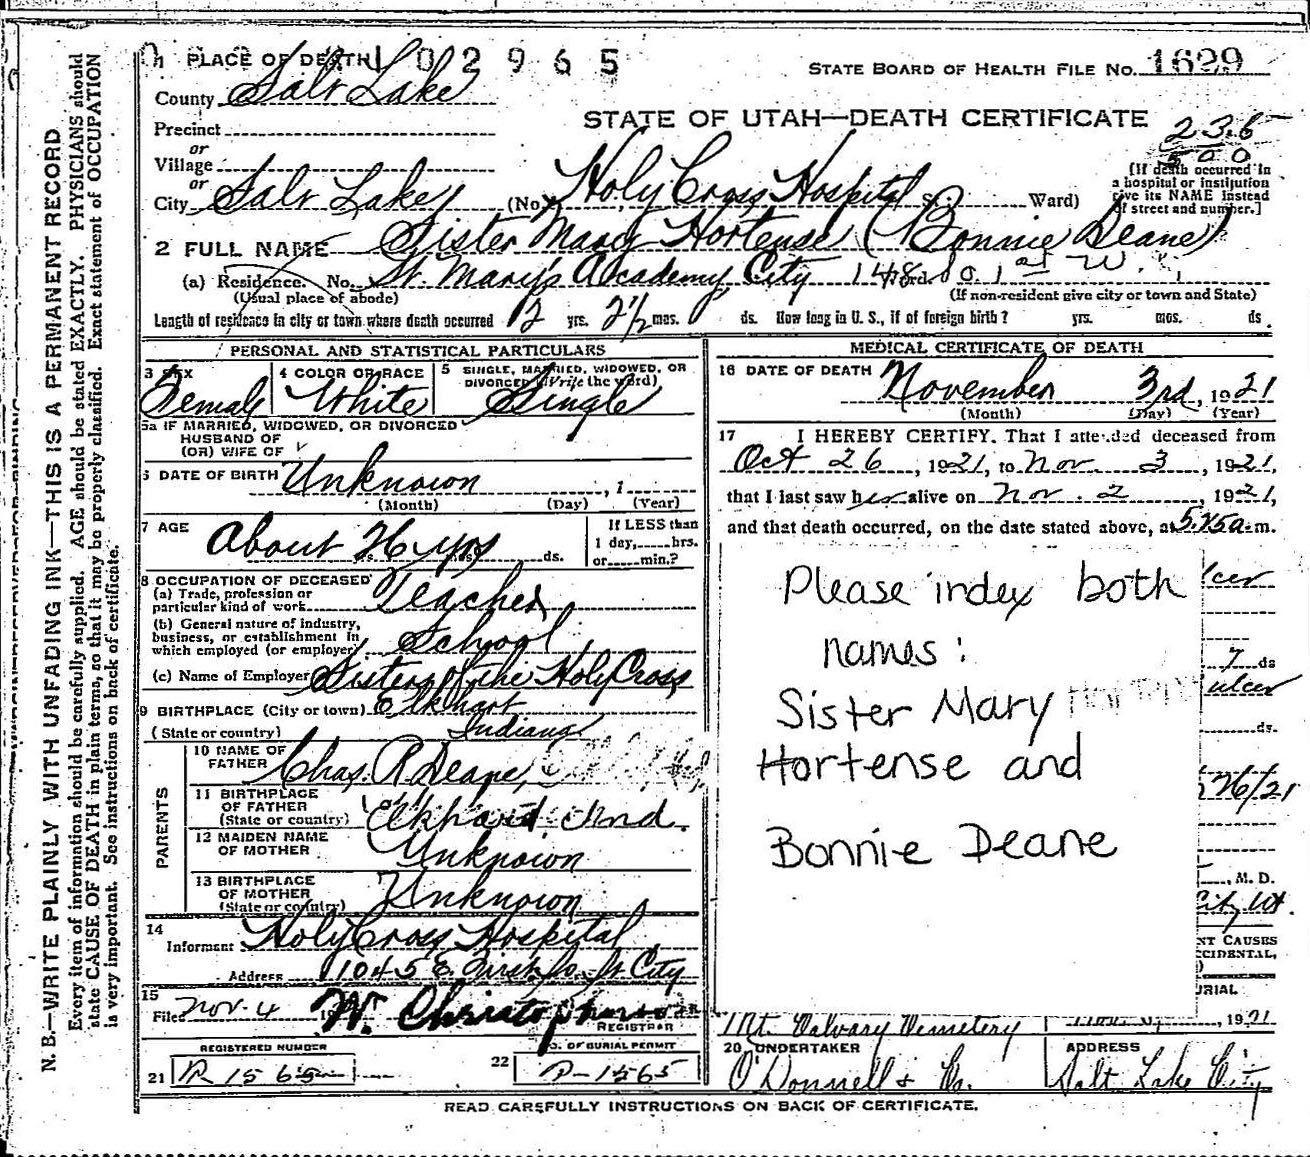 1 PLACE OF DEATH 02965
STATE BOARD OF HEALTH FILE No. 1629
County Salt Lake
STATE OF UTAH—DEATH CERTIFICATE
Precinct
or
Village
or
City Salt Lake (No. Holy Cross Hospital S; Ward)
236
500
[If death occurred in
a hospital or institution
give its NAME instead
of street and number.]
2 FULL NAME Sister Mary Hortense (Bonnie Deane)
(a) Residence. No. St. Mary's Academy, City 148 So. 1st W.
(Usual place of abode)
(If non-resident give city or town and State)
Length of residence in city or town where death occurred 12 yrs. 2½ mos. ds. How long in U. S., if of foreign birth? yrs. mos. ds.
PERSONAL AND STATISTICAL PARTICULARS
3 SEX
Female
4 COLOR OR RACE
White
5 SINGLE, MARRIED, WIDOWED, OR
DIVORCED (Write the word)
Single
5a IF MARRIED, WIDOWED, OR DIVORCED
HUSBAND OF
(OR) WIFE OF
6 DATE OF BIRTH Unknown , 1
(Month) (Day) (Year)
7 AGE
About 26 yrs ds.
If LESS than
1 day, hrs.
or min.?
8 OCCUPATION OF DECEASED
(a) Trade, profession or
particular kind of work Teacher
(b) General nature of industry,
business, or establishment in
which employed (or employer) School
(c) Name of Employer Sisters of the Holy Cross
9 BIRTHPLACE (City or town) Elkhart
(State or country) Indiana
PARENTS
10 NAME OF
FATHER Chas. R. Deane,
11 BIRTHPLACE
OF FATHER
(State or country) Elkhart. Ind.
12 MAIDEN NAME
OF MOTHER Unknown
13 BIRTHPLACE
OF MOTHER
(State or country) Unknown
14
Informant Holy Cross Hospital
Address 1045 E. First So. St City
15
Filed Nov. 4 19 W. Christopherson
REGISTRAR
REGISTERED NUMBER
21 R 1565
NO. OF BURIAL PERMIT
22 P-1565
MEDICAL CERTIFICATE OF DEATH
16 DATE OF DEATH November 3rd, 1921
(Month) (Day) (Year)
17 I HEREBY CERTIFY, That I attended deceased from
Oct 26, 1921, to Nov. 3, 1921,
that I last saw her alive on Nov. 2, 1921,
and that death occurred, on the date stated above, at 5.45 a. m.
Please index both
names:
Sister Mary
Hortense and
Bonnie Deane
ulcer
7 ds
ulcer
ds.
26/21
, M. D.
City Ut.
NT CAUSES
CCIDENTAL,
URIAL
Mt. Calvary Cemetery , 1921
20 UNDERTAKER
O'Donnell & Co.
ADDRESS
Salt Lake City
READ CAREFULLY INSTRUCTIONS ON BACK OF CERTIFICATE.
N. B.—WRITE PLAINLY WITH UNFADING INK—THIS IS A PERMANENT RECORD
Every item of information should be carefully supplied. AGE should be stated EXACTLY. PHYSICIANS should
state CAUSE OF DEATH in plain terms, so that it may be properly classified. Exact statement of OCCUPATION
is very important. See instructions on back of certificate.